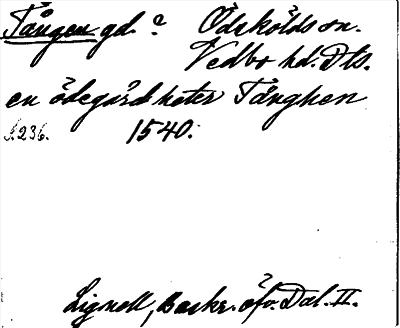 Tången gd. ? Ödskölds sn.
Vedbo hd. Dls.
en ödegård heter Tånghen
S. 236. 1540.
Lignell, Beskr. öfv. Dal. II.